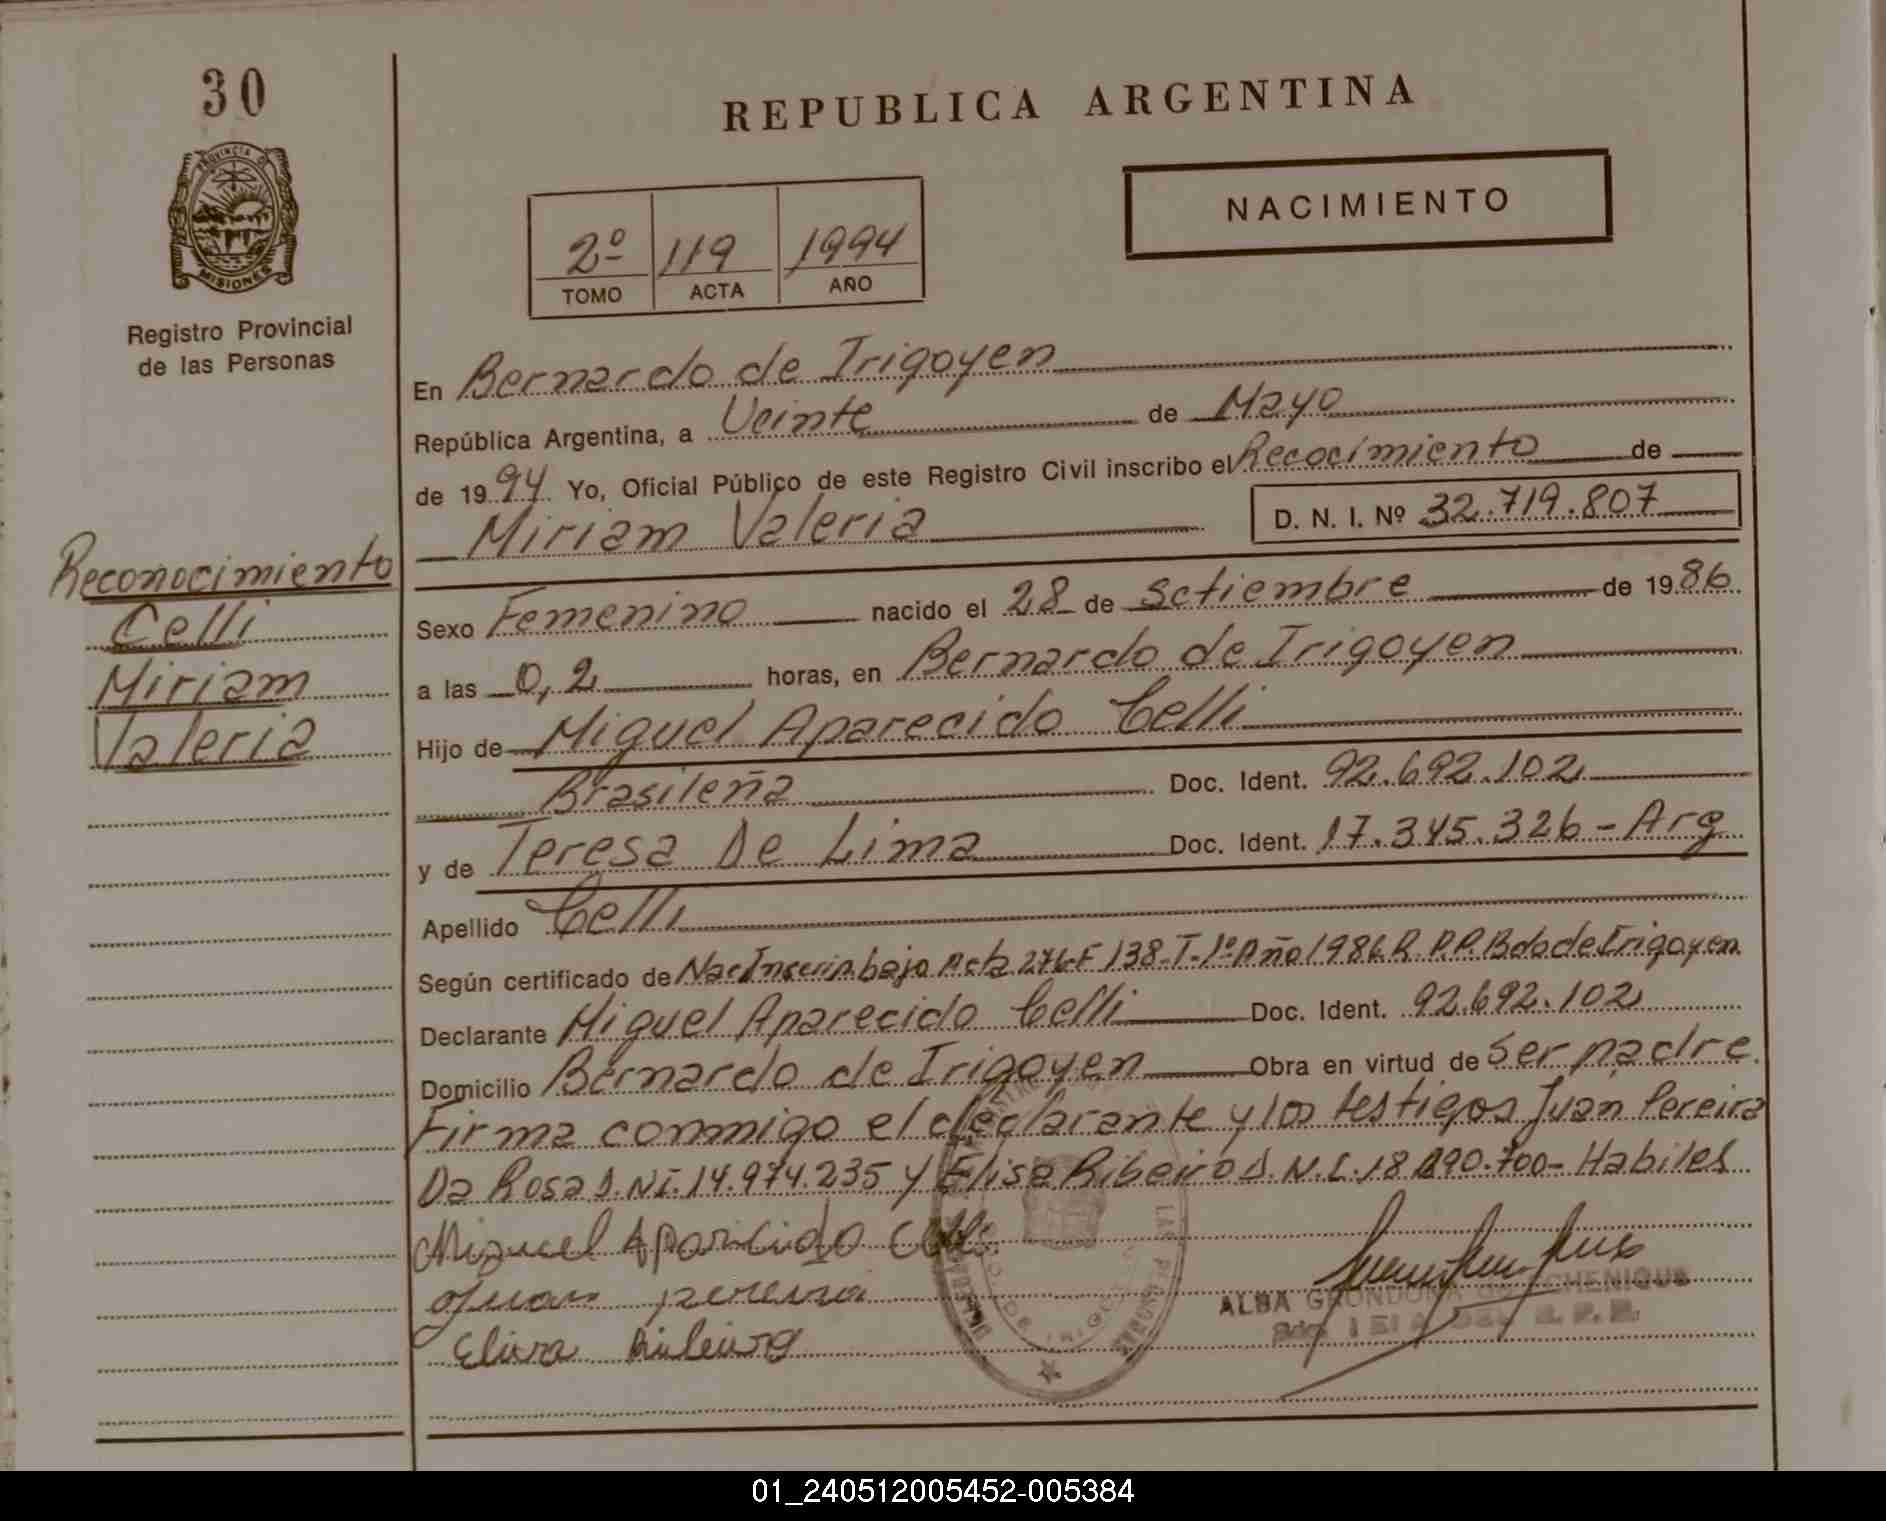 30
REPUBLICA ARGENTINA
PROVINCIA DE
MISIONES
NACIMIENTO
2º 119 1994
TOMO ACTA AÑO
Registro Provincial
de las Personas
En Bernardo de Irigoyen
República Argentina, a Veinte de Mayo
de 1994 Yo, Oficial Público de este Registro Civil inscribo el Recocimiento de
Miriam Valeria D. N. I. Nº 32.719.807
Reconocimiento
Celli
Miriam
Valeria
Sexo Femenino nacido el 28 de Setiembre de 1986
a las 0,2 horas, en Bernardo de Irigoyen
Hijo de Miguel Aparecido Celli
Brasileña Doc. Ident. 92.692.102
y de Teresa De Lima Doc. Ident. 17.345.326 - Arg
Apellido Celli
Según certificado de Nac. bajo Acta 276-F 138-T-1º Año 1986 R. P.P. Bdo de Irigoyen
Declarante Miguel Aparecido Celli Doc. Ident. 92.692.102
Domicilio Bernardo de Irigoyen Obra en virtud de Ser padre.
Firma conmigo el declarante y los testigos Juan Pereira
Da Rosa D.NI.14.974.235 y Elisa Ribeiro D.N.I.18.890.700- Habiles
Miguel Aparicido Celli
Juan pereira
ALBA GRONDONA
Elisa Ribeiro
01_240512005452-005384